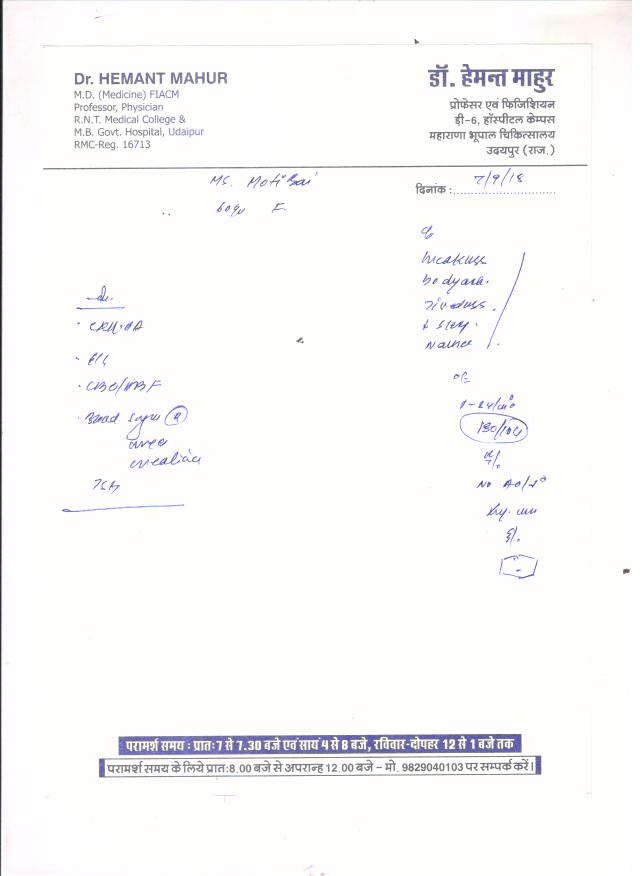 Dr. HEMANT MAHUR
M.D. (Medicine) FIACM
Professor, Physician
R.N.T. Medical College &
M.B. Govt. Hospital, Udaipur
RMC-Reg. 16713
डॉ. हेमन्त माहुर
प्रोफेसर एवं फिजिशियन
डी-6, हॉस्पीटल केम्पस
महाराणा भूपाल चिकित्सालय
उदयपुर (राज.)
Ms. Moti Bai
60y F
दिनांक : 7/9/18
c/o
weakness
bodyache
O/E
NO
CBC/
Blood sugar (R)
urea
creatinine
TSH
परामर्श समय : प्रातः 7 से 7.30 बजे एवं सायं 4 से 8 बजे, रविवार-दोपहर 12 से 1 बजे तक
परामर्श समय के लिये प्रात:8.00 बजे से अपरान्ह 12.00 बजे – मो. 9829040103 पर सम्पर्क करें।